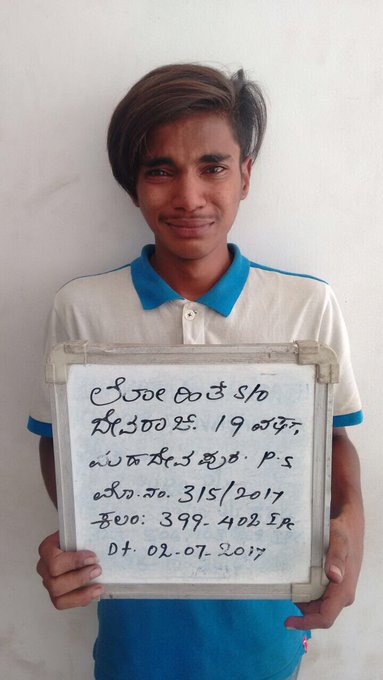 ಲೋಹಿತ S/o
ದೇವರಾಜ್. 19 ವರ್ಷ,
ಮಹದೇವಪುರ. P.S
ಮೊ.ನಂ. 315/2017
ಕಲಂ: 399-402 IPC
Dt. 02-07-2017